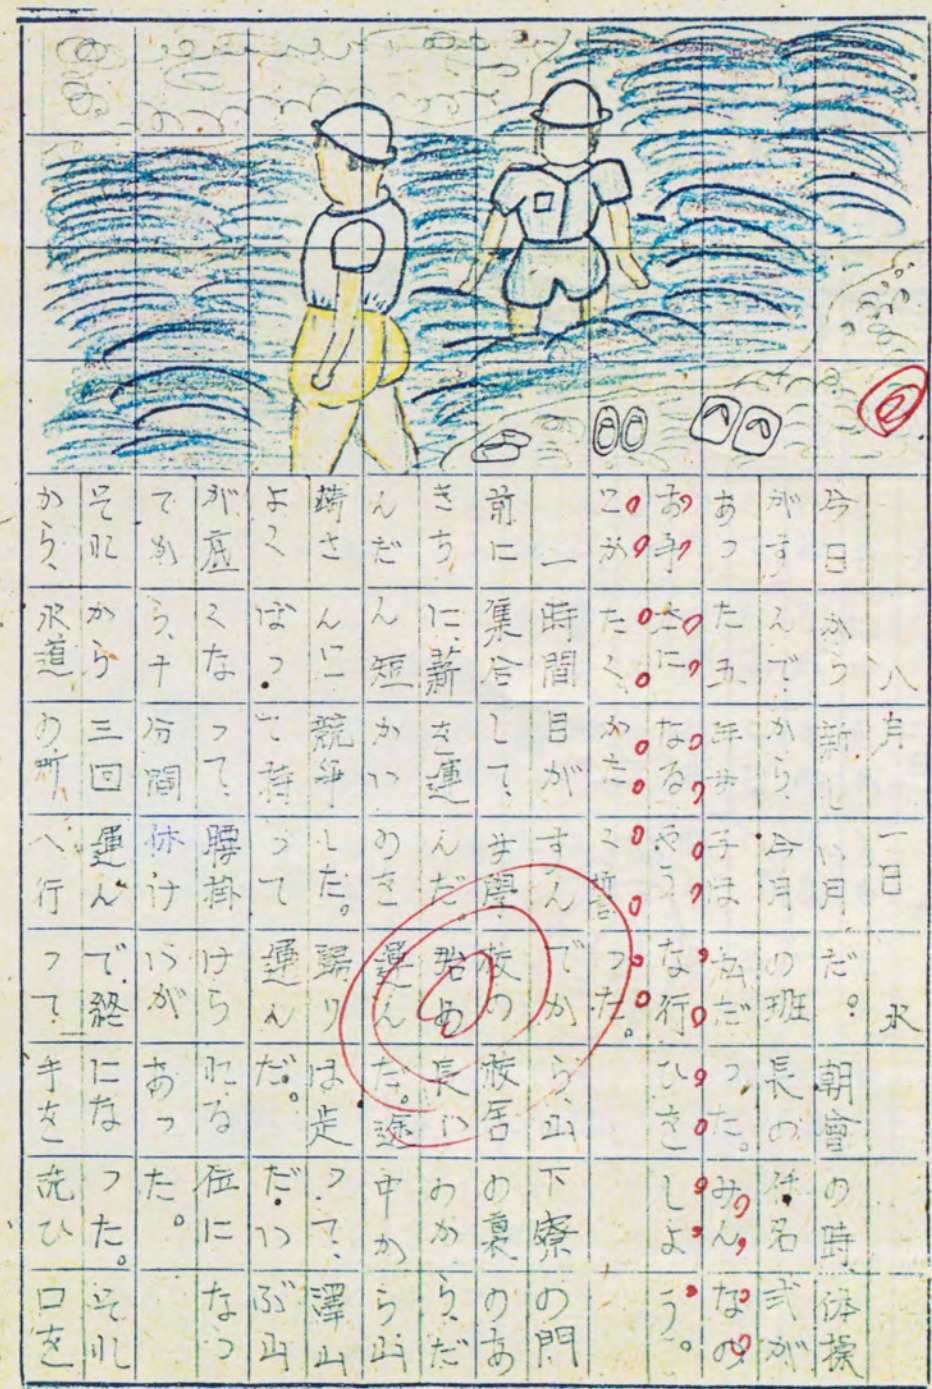 八月一日 水
今日から新しい月だ。朝會の時、体操
がすんでから、今月の班長の任名式が
あった。五年女子は私だった。みんなの
お手本になるやうな行ひをしよう。
とかたくかたく誓った。
一時間目がすんでから、山下寮の門
前に集合して、女學校の校舎の裏のあ
きちに、薪を運んだ。始め長いのから、だ
んだん短かいのを運んだ。途中から山
崎さんに競爭した。歸りは走って、澤山
よくばって持って運んだ。だいぶ山
が底くなって、腰掛けられる位になつ
てから、十分間休けいがあった。
それから三回運んで、終になった。それ
から、水道の所へ行って手を洗ひ口を